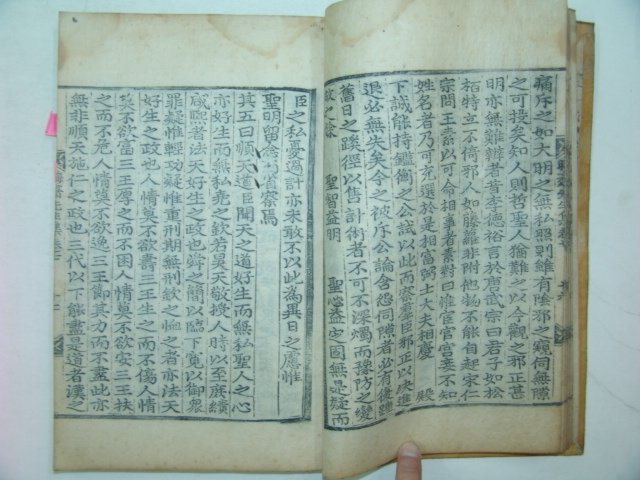 痛斥之如大明之無私照則雖有陰邪之窺伺無隙
之可投矣知人則哲聖人猶難之以今觀之邪正甚
明亦無難辨者昔李德裕言於唐武宗曰君子如松
栢特立不倚邪人如藤蘿非附他物不能自起宋仁
宗問王素以可命相事者素對曰惟宦官宮妾不知
姓名者乃可充選於是相富弼士大夫相慶 殿
下誠能持鑑衡之公試以此而察羣臣邪正以決進
退必無失矣今之被斥公論含怨伺隙者必有復踵
舊日之蹊徑以售計術者不可不深燭而豫防之變
故之餘 聖智益明 聖心益定固無是疑而
臣之私憂過計亦未敢不以此爲異日之慮惟
聖明留念省察焉
其五曰順天道臣聞天之道好生而無私聖人之心
亦好生而無私堯之欽若昊天敬授人時以至庶績
咸熙者法天好生之政也舜之簡以臨下寬以御衆
罪疑惟輕功疑惟重刑期無刑欽之恤之者亦法天
好生之政也人情莫不欲壽三王生之而不傷人情
莫不欲富三王厚之而不困人情莫不欲安三王扶
之而不危人情莫不欲逸三王節其力而不盡此亦
無非順天施仁之政也三代以下能盡是道者漢之